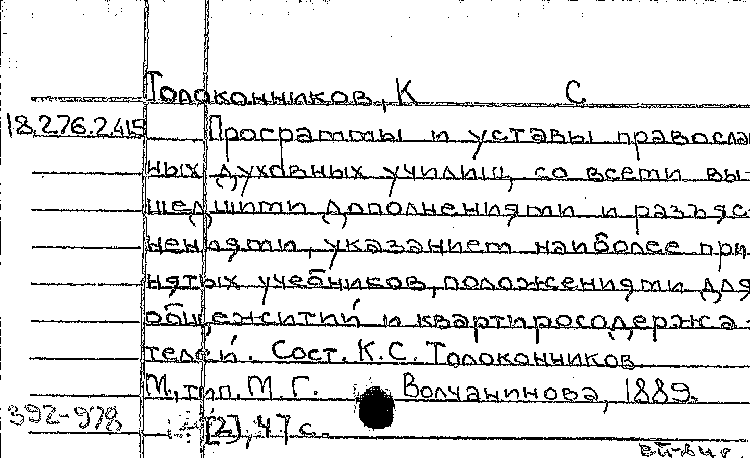 Толоконников, К С.
18.276.2.415 Программы и уставы правосла
ных духовных училищ, со всеми вы-
шедшими дополнениями и разъяс
нениями, указанием наиболее при
нятых учебников, положениями для
общежитий и квартиросодержа-
телей. Сост. К.С. Толоконников
М., тип. М. Г. Волчанинова, 1889.
392-978 [2], 47 с.